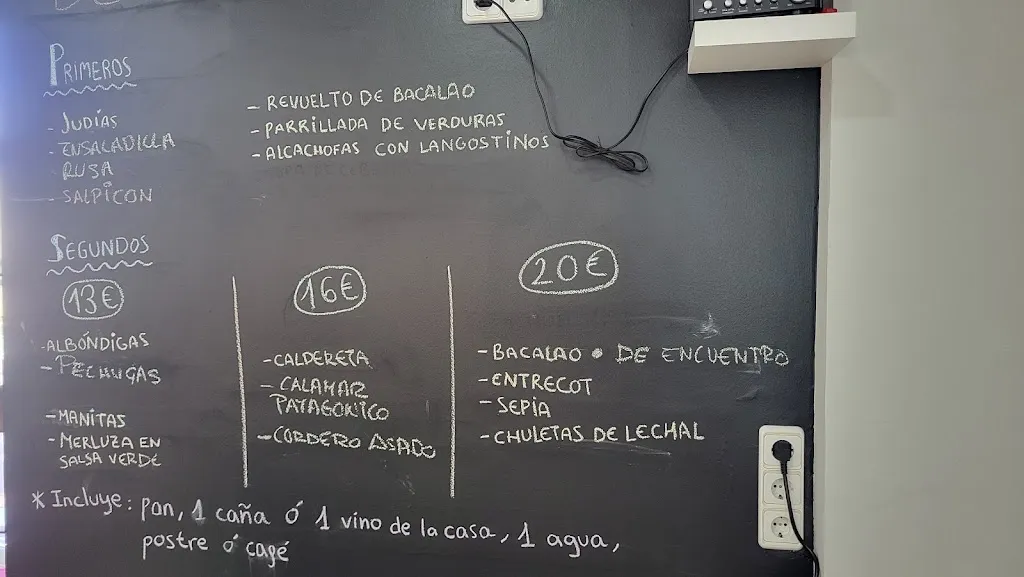 PRIMEROS
- JUDÍAS
- ENSALADILLA
RUSA
- SALPICON
- REVUELTO DE BACALAO
- PARRILLADA DE VERDURAS
- ALCACHOFAS CON LANGOSTINOS
SEGUNDOS
13€
- ALBÓNDIGAS
- PECHUGAS
- MANITAS
- MERLUZA EN
SALSA VERDE
16€
- CALDERETA
- CALAMAR
PATAGONICO
- CORDERO ASADO
20€
- BACALAO • DE ENCUENTRO
- ENTRECOT
- SEPIA
- CHULETAS DE LECHAL
* Incluye: pan, 1 caña ó 1 vino de la casa, 1 agua,
postre ó café